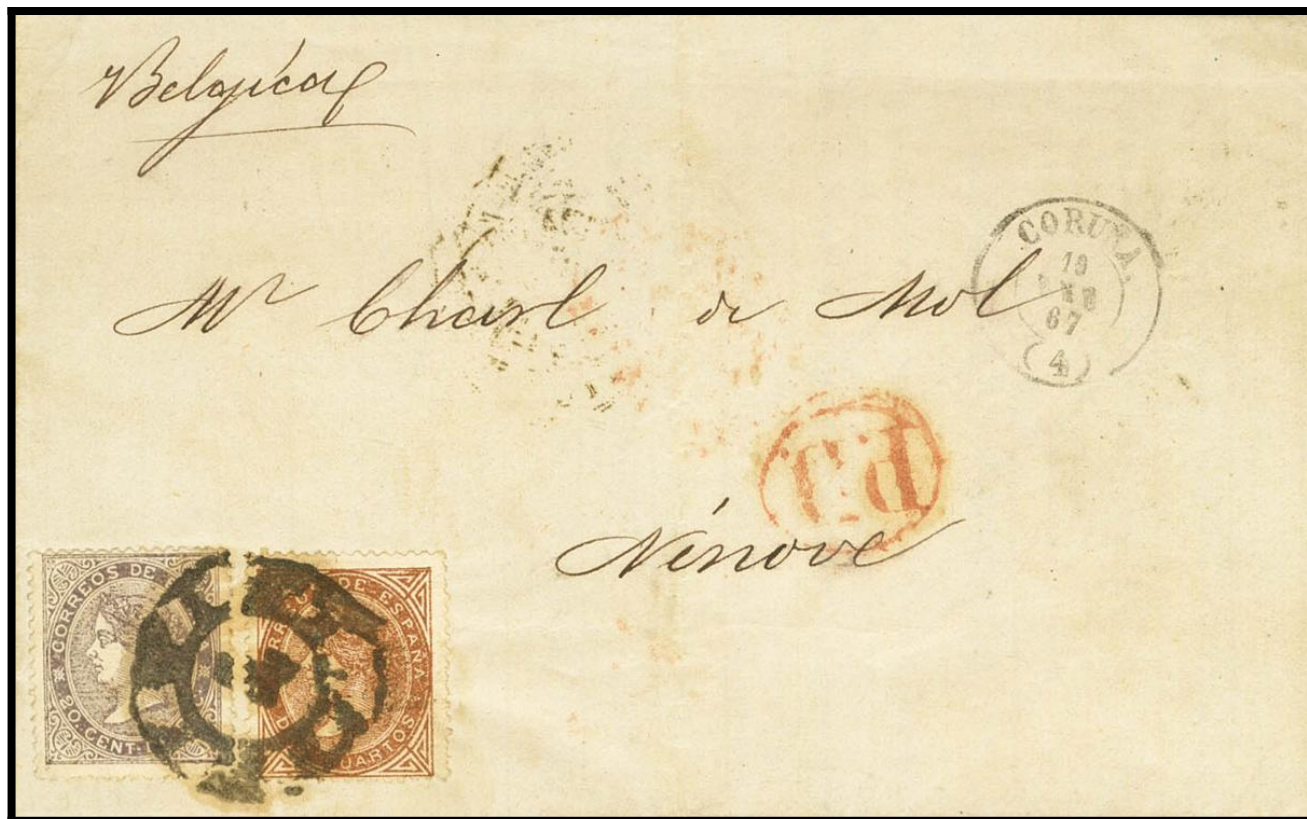 Belgica
CORUÑA.
19
67
(4)
Mr Charl de Mol
P.D.
Ninove
CORREOS DE
20. CENT. DE
DE ESPAÑA
CUARTOS